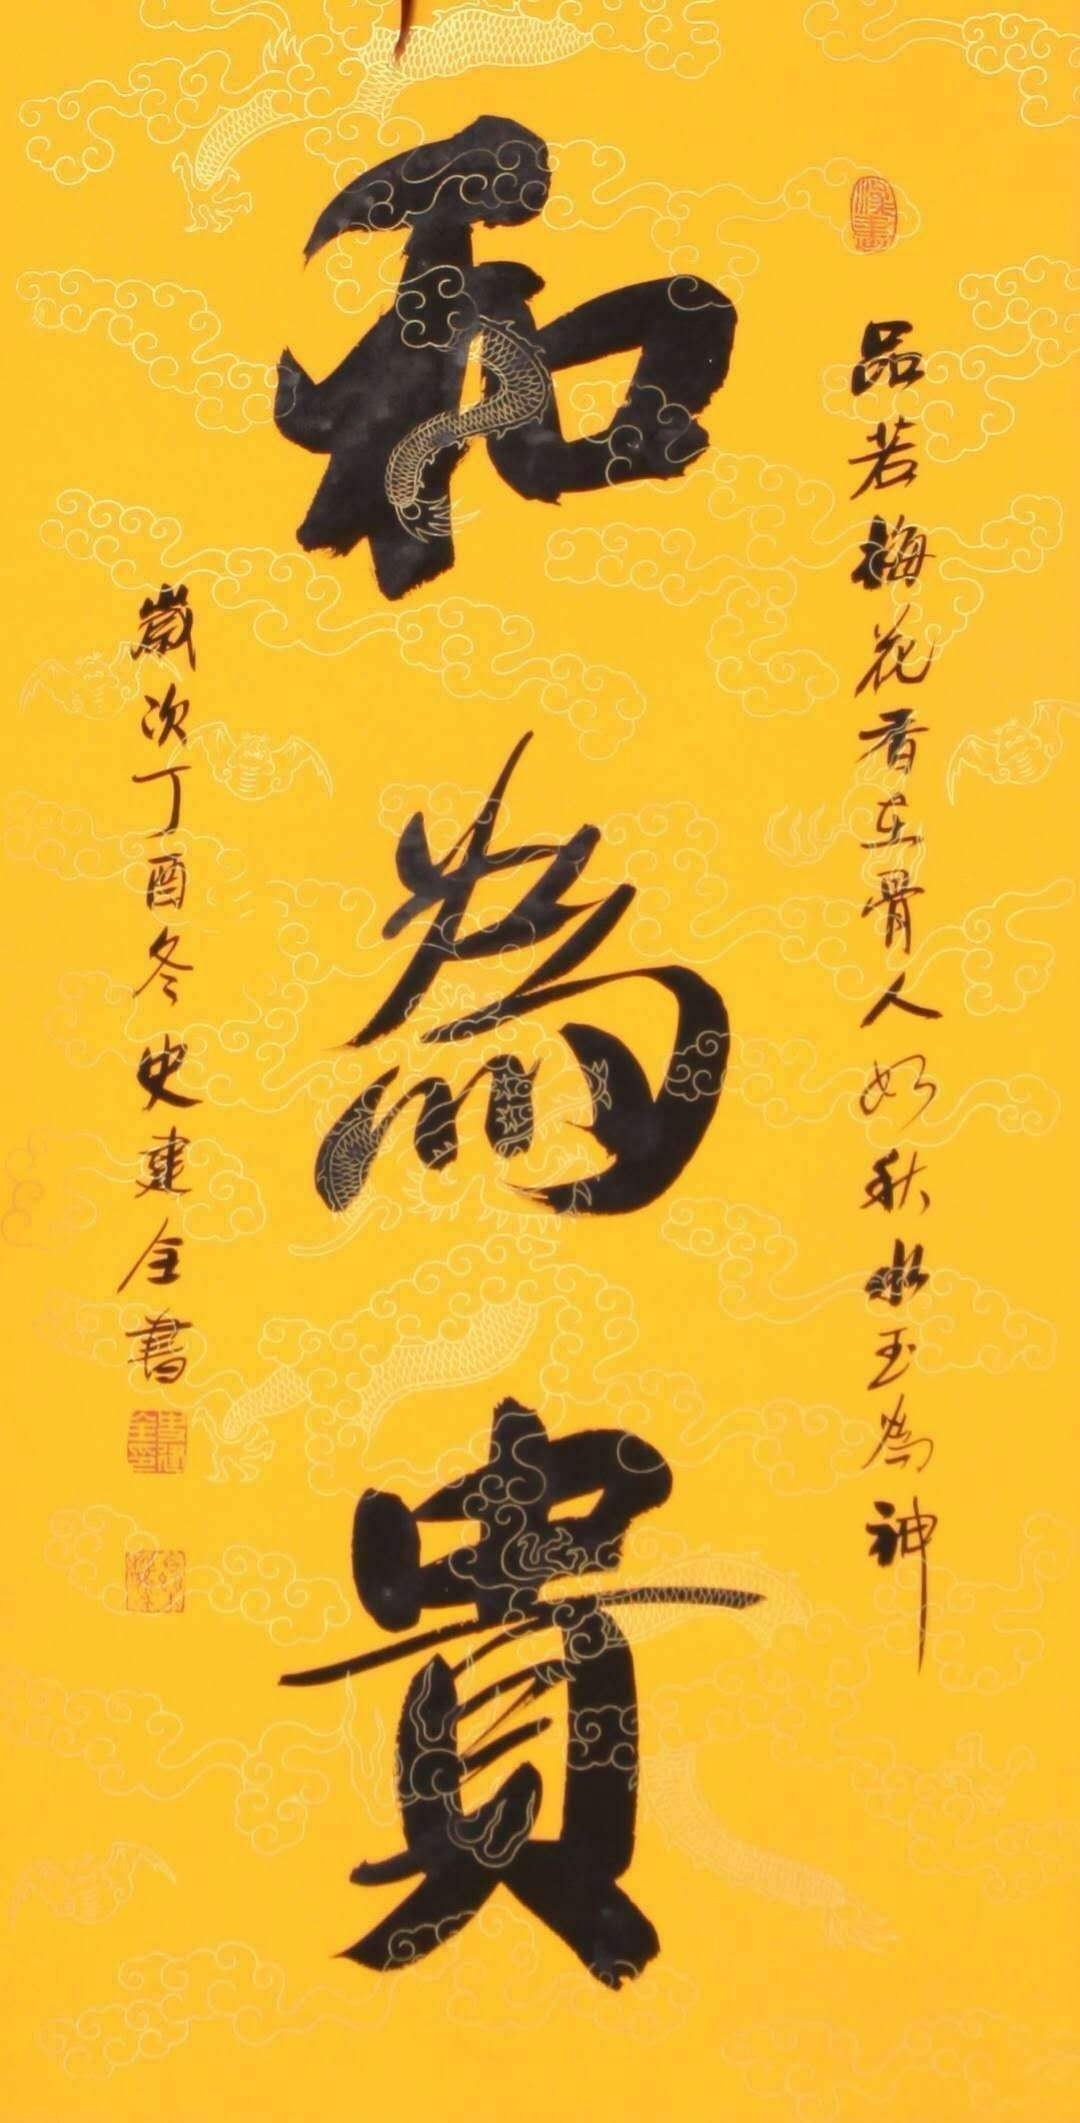 品若梅花香在骨人如秋水玉為神
和為貴
歲次丁酉冬史建全書